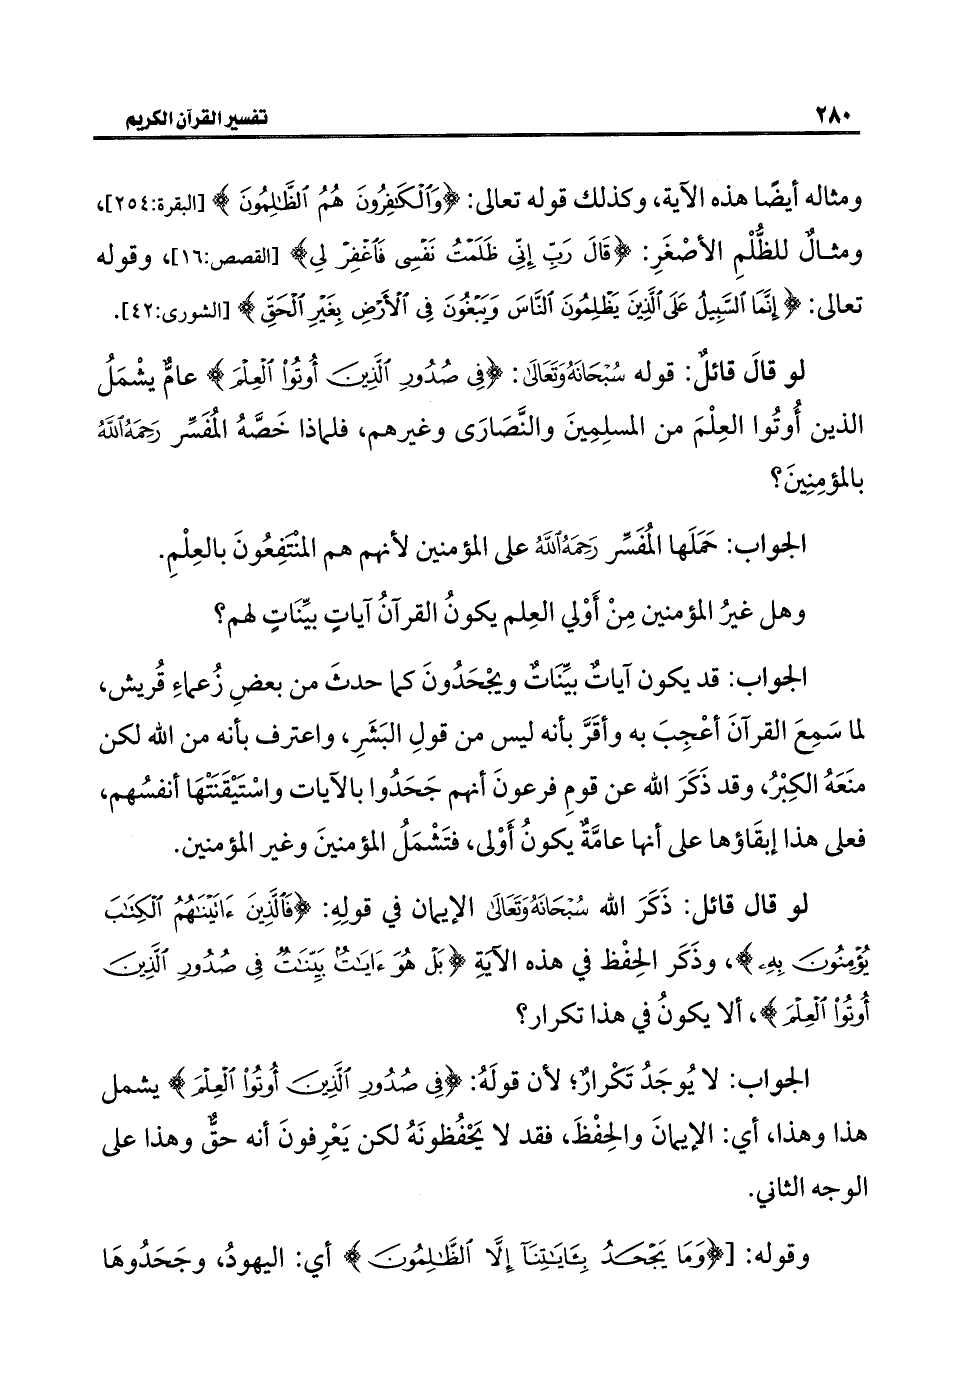 ٢٨٠ تفسير القرآن الكريم
ومثاله أيضًا هذه الآية، وكذلك قوله تعالى: ﴿وَٱلْكَٰفِرُونَ هُمُ ٱلظَّٰلِمُونَ﴾ [البقرة:٢٥٤]،
ومثالٌ للظُّلْمِ الأصْغَرِ: ﴿قَالَ رَبِّ إِنِّي ظَلَمْتُ نَفْسِي فَٱغْفِرْ لِي﴾ [القصص:١٦]، وقوله
تعالى: ﴿إِنَّمَا ٱلسَّبِيلُ عَلَى ٱلَّذِينَ يَظْلِمُونَ ٱلنَّاسَ وَيَبْغُونَ فِي ٱلْأَرْضِ بِغَيْرِ ٱلْحَقِّ﴾ [الشورى:٤٢].
لو قالَ قائلٌ: قوله سُبْحَانَهُ وَتَعَالَىٰ: ﴿فِي صُدُورِ ٱلَّذِينَ أُوتُوا۟ ٱلْعِلْمَ﴾ عامٌّ يشْمَلُ
الذين أُوتُوا العِلْمَ من المسلِمِينَ والنَّصَارَى وغيرهم، فلماذا خَصَّهُ المُفَسِّر رَحِمَهُ ٱللَّهُ
بالمؤمِنِينَ؟
الجواب: حَمَلَها المُفَسِّر رَحِمَهُ ٱللَّهُ على المؤمنين لأنهم هم المنْتَفِعُونَ بالعِلْمِ.
وهل غيرُ المؤمنين مِنْ أَوْلي العِلم يكونُ القرآنُ آياتٍ بيِّنَاتٍ لهم؟
الجواب: قد يكون آياتٌ بيِّنَاتٌ ويجْحَدُونَ كما حدثَ من بعضِ زُعماءِ قُريش،
لما سَمِعَ القرآنَ أعْجِبَ به وأقَرَّ بأنه ليس من قولِ البَشَرِ، واعترف بأنه من الله لكن
منَعَهُ الكِبْرُ، وقد ذَكَرَ الله عن قومِ فرعونَ أنهم جَحَدُوا بالآيات واسْتَيْقَنَتْهَا أنفسُهم،
فعلى هذا إبقَاؤها على أنها عامَّةٌ يكونُ أَوْلى، فتَشْمَلُ المؤمنينَ وغير المؤمنين.
لو قال قائل: ذَكَرَ الله سُبْحَانَهُ وَتَعَالَىٰ الإيمان في قولِهِ: ﴿فَٱلَّذِينَ ءَاتَيْنَٰهُمُ ٱلْكِتَٰبَ
يُؤْمِنُونَ بِهِۦ﴾، وذَكَر الحِفْظ في هذه الآيَةِ ﴿بَلْ هُوَ ءَايَٰتٌۢ بَيِّنَٰتٌ فِي صُدُورِ ٱلَّذِينَ
أُوتُوا۟ ٱلْعِلْمَ﴾، ألا يكونُ في هذا تكرار؟
الجواب: لا يُوجَدُ تَكْرارٌ؛ لأن قولَهُ: ﴿فِي صُدُورِ ٱلَّذِينَ أُوتُوا۟ ٱلْعِلْمَ﴾ يشمل
هذا وهذا، أي: الإيمانَ والحِفْظَ، فقد لا يَحْفُظونَهُ لكن يَعْرِفونَ أنه حقٌّ وهذا على
الوجه الثاني.
وقوله: [﴿وَمَا يَجْحَدُ بِـَٔايَٰتِنَآ إِلَّا ٱلظَّٰلِمُونَ﴾ أي: اليهودُ، وجَحَدُوهَا